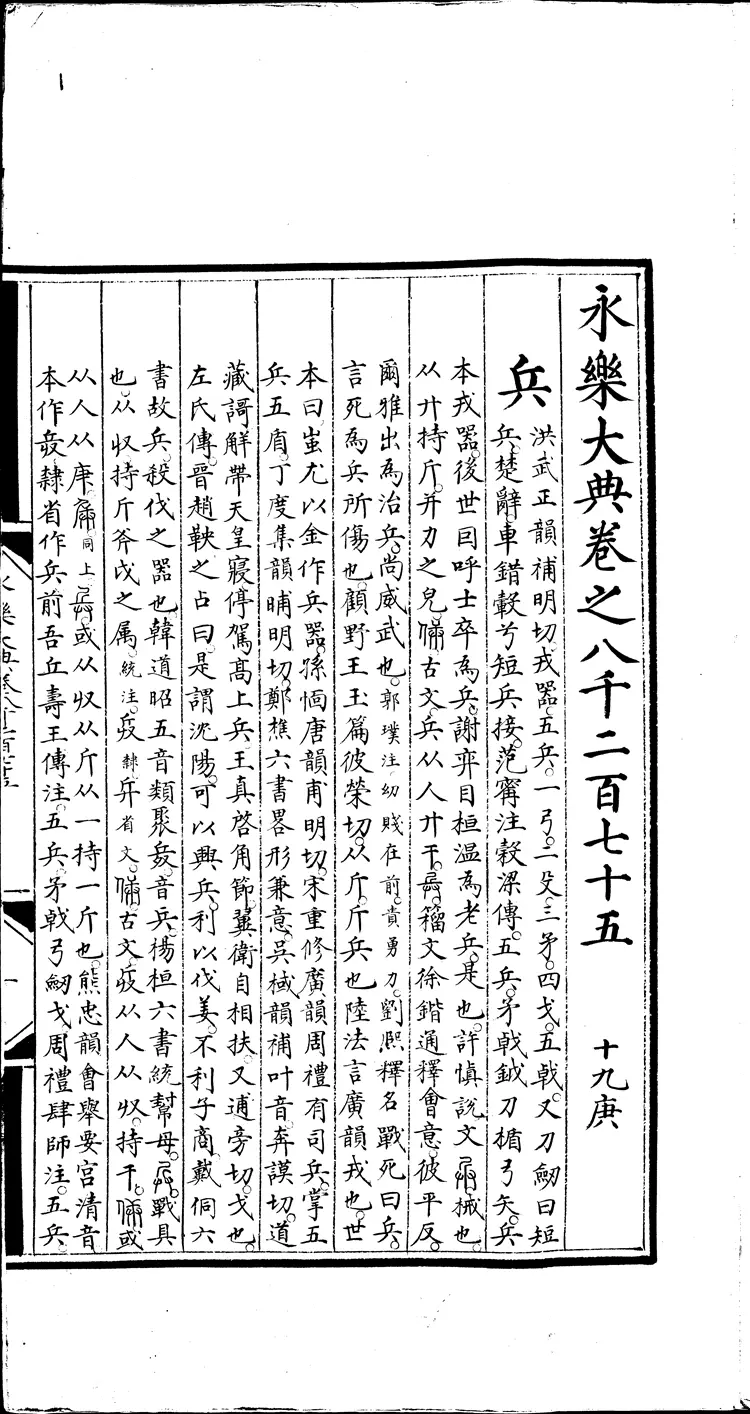 永樂大典卷之八千二百七十五 十九庚
兵
洪武正韻補明切。戎器。五兵。一弓。二殳。三矛。四戈。五戟。又刀劒曰短
兵。楚辭車錯轂兮短兵接。范寗注穀梁傳。五兵。矛戟鉞刀楯弓矢。兵
本戎器。後世囙呼士卒為兵。謝奕目桓溫為老兵。是也。許慎說文 械也。
从廾持斤。并力之皃。㒋古文。兵从人廾干。 籀文徐鍇通釋會意。彼平反。
爾雅出為治兵。尚威武也。郭璞注幼賤在前。貴勇力。劉熈釋名戰死曰兵。
言死為兵所傷也。顧野王玉篇彼榮切。从斤。斤兵也陸法言廣韻戎也。世
本曰。蚩尤以金作兵器。孫愐唐韻甫明切。宋重修廣韻周禮有司兵。掌五
兵五盾。丁度集韻晡明切。鄭樵六書畧形兼意。吳棫韻補叶音。奔謨切。道
藏謌解帶天皇寢停駕髙上兵。王真啓角節。翼衛自相扶。又逋旁切。戈也。
左氏傳。晉趙鞅之占曰。是謂沈陽。可以興兵。利以伐姜。不利子商。戴侗六
書故兵。殺伐之器也韓道昭五音類聚 音兵。楊桓六書統幫母。 戰具
也。从収持斤斧戉之属。統注。 隷 省文。㒋古文。 从人从収。持干。㒋或
从人从庚。 同上。 或从収从斤从一持一斤也。熊忠韻會舉要宮清音
本作 隷省作兵前吾丘壽王傳注。五兵。矛戟弓劒戈。周禮肆師注。五兵。